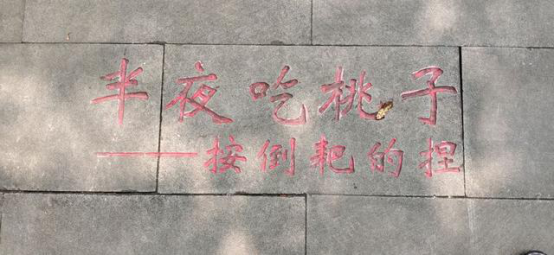 半夜吃桃子
——按倒耙的捏